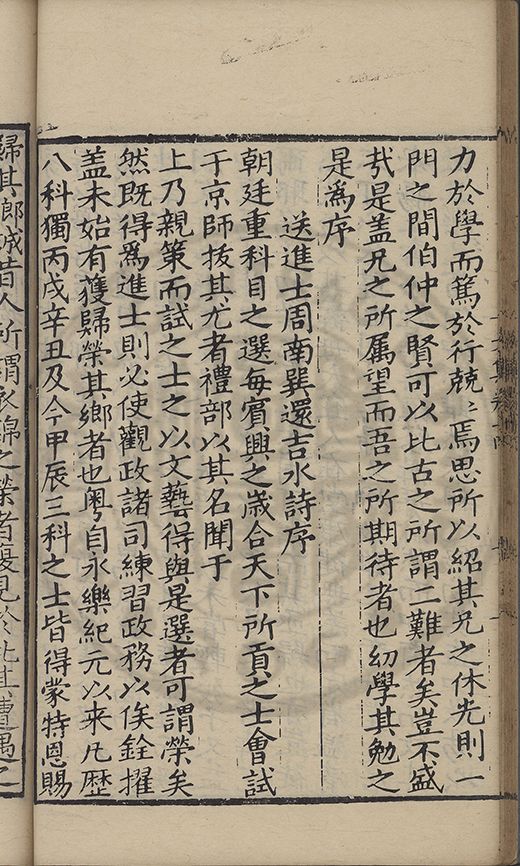 力於學而篤於行兢〻焉思所以紹其兄之休光則一
門之間伯仲之賢可以比古之所謂二難者矣豈不盛
㢤是盖兄之所属望而吾之所期待者也幼學其勉之
是爲序
送進士周南巽還吉水詩序
朝廷重科目之選每賔興之歳合天下所貢之士會試
于京師拔其尤者禮部以其名聞于
上乃親策而試之士之以文藝得與是選者可謂榮矣
然既得爲進士則必使觀政諸司練習政務以俟銓擢
盖未始有獲歸榮其鄉者也粤自永樂紀元以来凡歴
八科獨丙戌辛丑及今甲辰三科之士皆得蒙特恩賜
歸其鄉誠昔人所謂衣錦之榮者復見於此其遭遇之